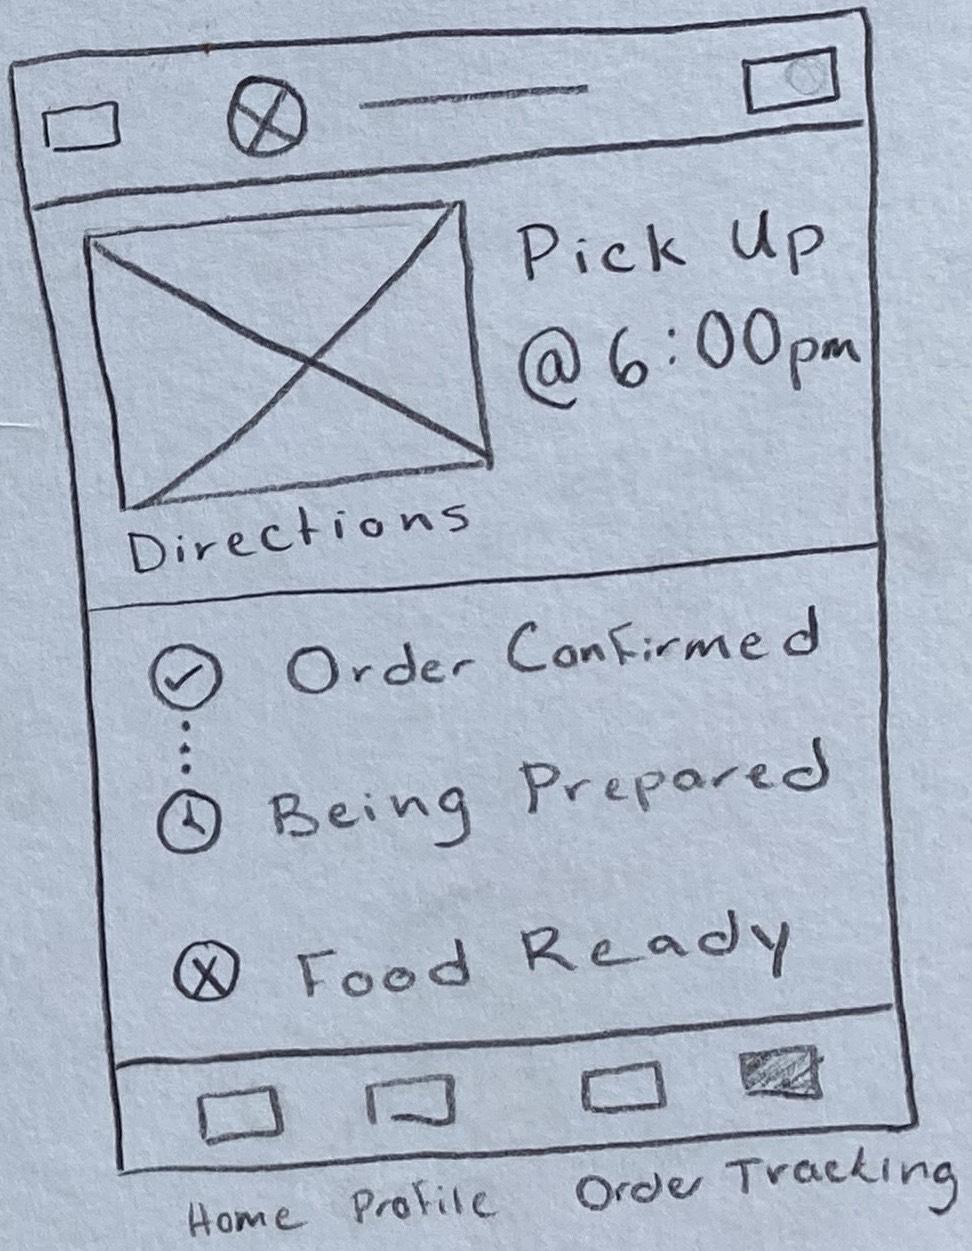 Pick Up
@ 6:00pm
Directions
Order Confirmed
Being Prepared
Food Ready
Home Profile Order Tracking